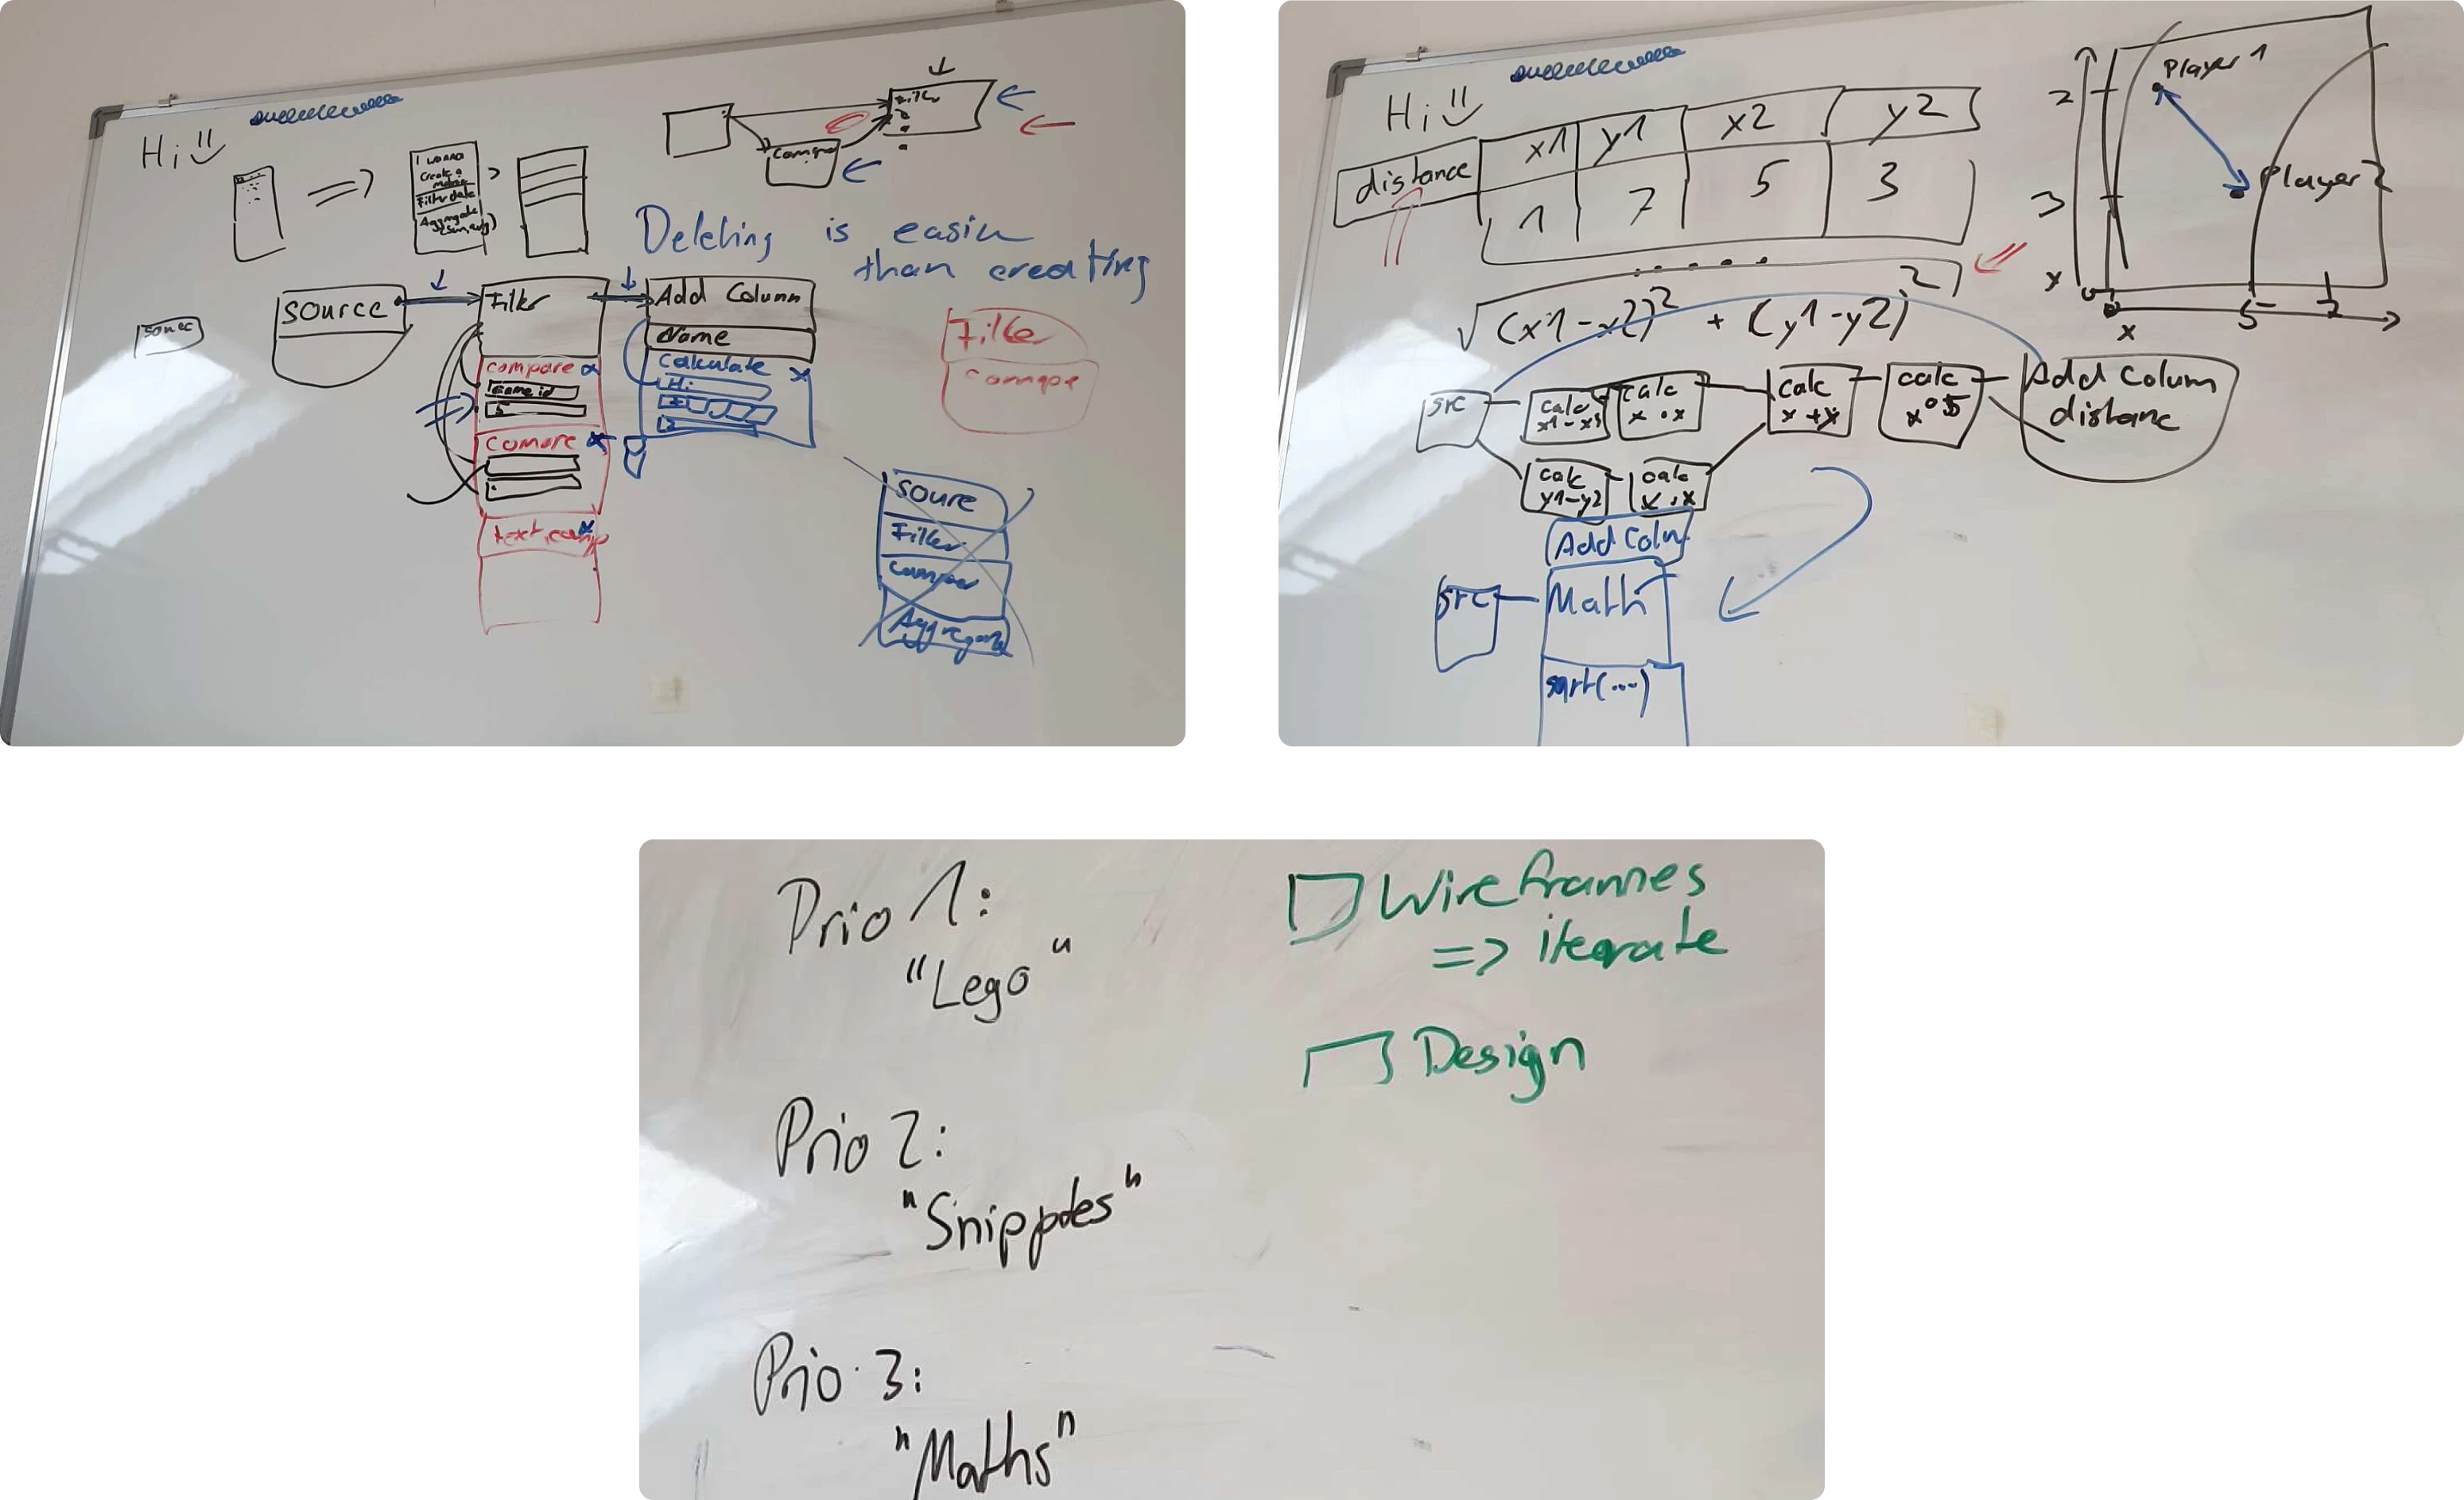 Hi
I wanna
Create a
Filter data
Aggregate
Filter
Deleting is easier
than creating
source
Filter
Add Column
Name
Calculate
Hi
compare
Game id
5
Comare
Filter
Compe
soure
Filter
Compar
Hi
distance
x1 y1 x2 y2
1 7 5 3
√(x1-x2)² + (y1-y2)²
Player 1
Player 2
2
3
x
0
5
x
src
calc
calc
x · x
calc
calc
Add Colum
distanc
calc
y1-y2
calc
Add Colm
src
Math
sqrt(...)
Prio 1:
"Lego"
Prio 2:
Prio 3:
"Maths"
Wireframes
=> iterate
Design